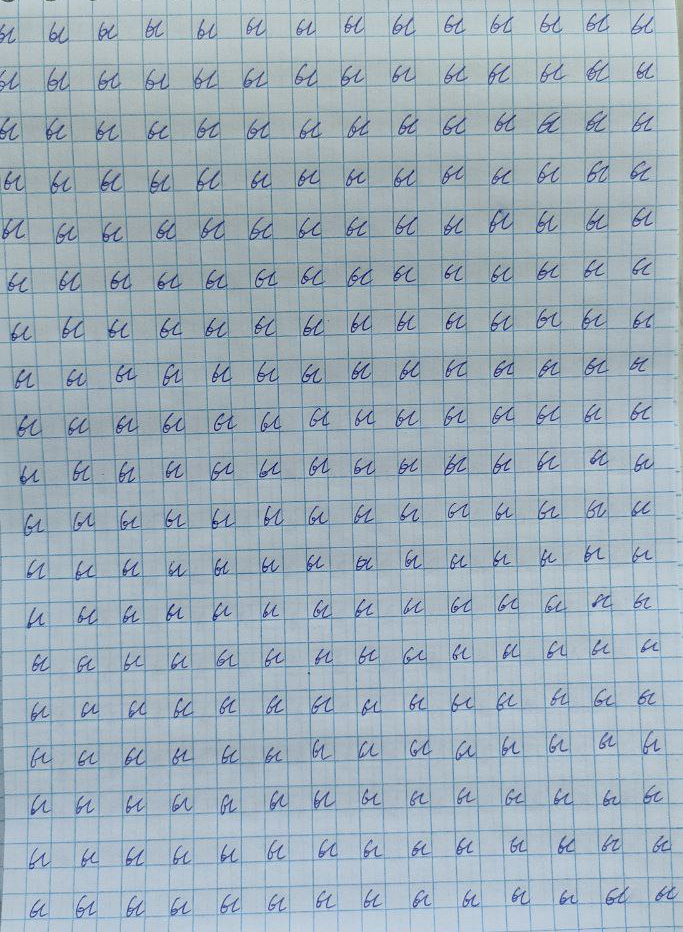 ы ы ы ы ы ы ы ы ы ы ы ы ы ы
ы ы ы ы ы ы ы ы ы ы ы ы ы ы
ы ы ы ы ы ы ы ы ы ы ы ы ы ы
ы ы ы ы ы ы ы ы ы ы ы ы ы ы
ы ы ы ы ы ы ы ы ы ы ы ы ы ы
ы ы ы ы ы ы ы ы ы ы ы ы ы ы
ы ы ы ы ы ы ы ы ы ы ы ы ы ы
ы ы ы ы ы ы ы ы ы ы ы ы ы ы
ы ы ы ы ы ы ы ы ы ы ы ы ы ы
ы ы ы ы ы ы ы ы ы ы ы ы ы ы
ы ы ы ы ы ы ы ы ы ы ы ы ы ы
ы ы ы ы ы ы ы ы ы ы ы ы ы ы
ы ы ы ы ы ы ы ы ы ы ы ы ы ы
ы ы ы ы ы ы ы ы ы ы ы ы ы ы
ы ы ы ы ы ы ы ы ы ы ы ы ы ы
ы ы ы ы ы ы ы ы ы ы ы ы ы ы
ы ы ы ы ы ы ы ы ы ы ы ы ы ы
ы ы ы ы ы ы ы ы ы ы ы ы ы ы
ы ы ы ы ы ы ы ы ы ы ы ы ы ы